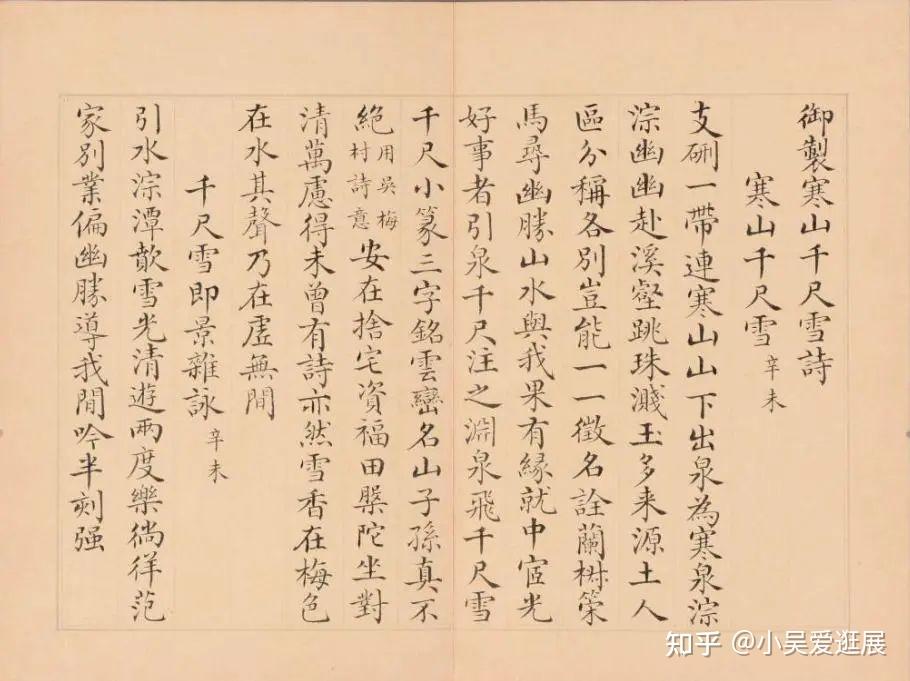 御製寒山千尺雪詩
寒山千尺雪 辛未
支硎一帶連寒山山下出泉為寒泉淙
淙幽幽赴溪壑跳珠濺玉多来源土人
區分稱各別豈能一一徵名詮蘭椒策
馬尋幽勝山水與我果有緣就中宧光
好事者引泉千尺注之淵泉飛千尺雪
千尺小篆三字銘雲巒名山子孫真不
絕 用吳梅村詩意 安在捨宅資福田槃陀坐對
清萬慮得未曾有詩亦然雪香在梅色
在水其聲乃在虛無間
千尺雪即景雜詠 辛未
引水淙潭歕雪光清遊兩度樂徜徉范
家別業偏幽勝導我閒吟半刻强
知乎 @小吴爱逛展